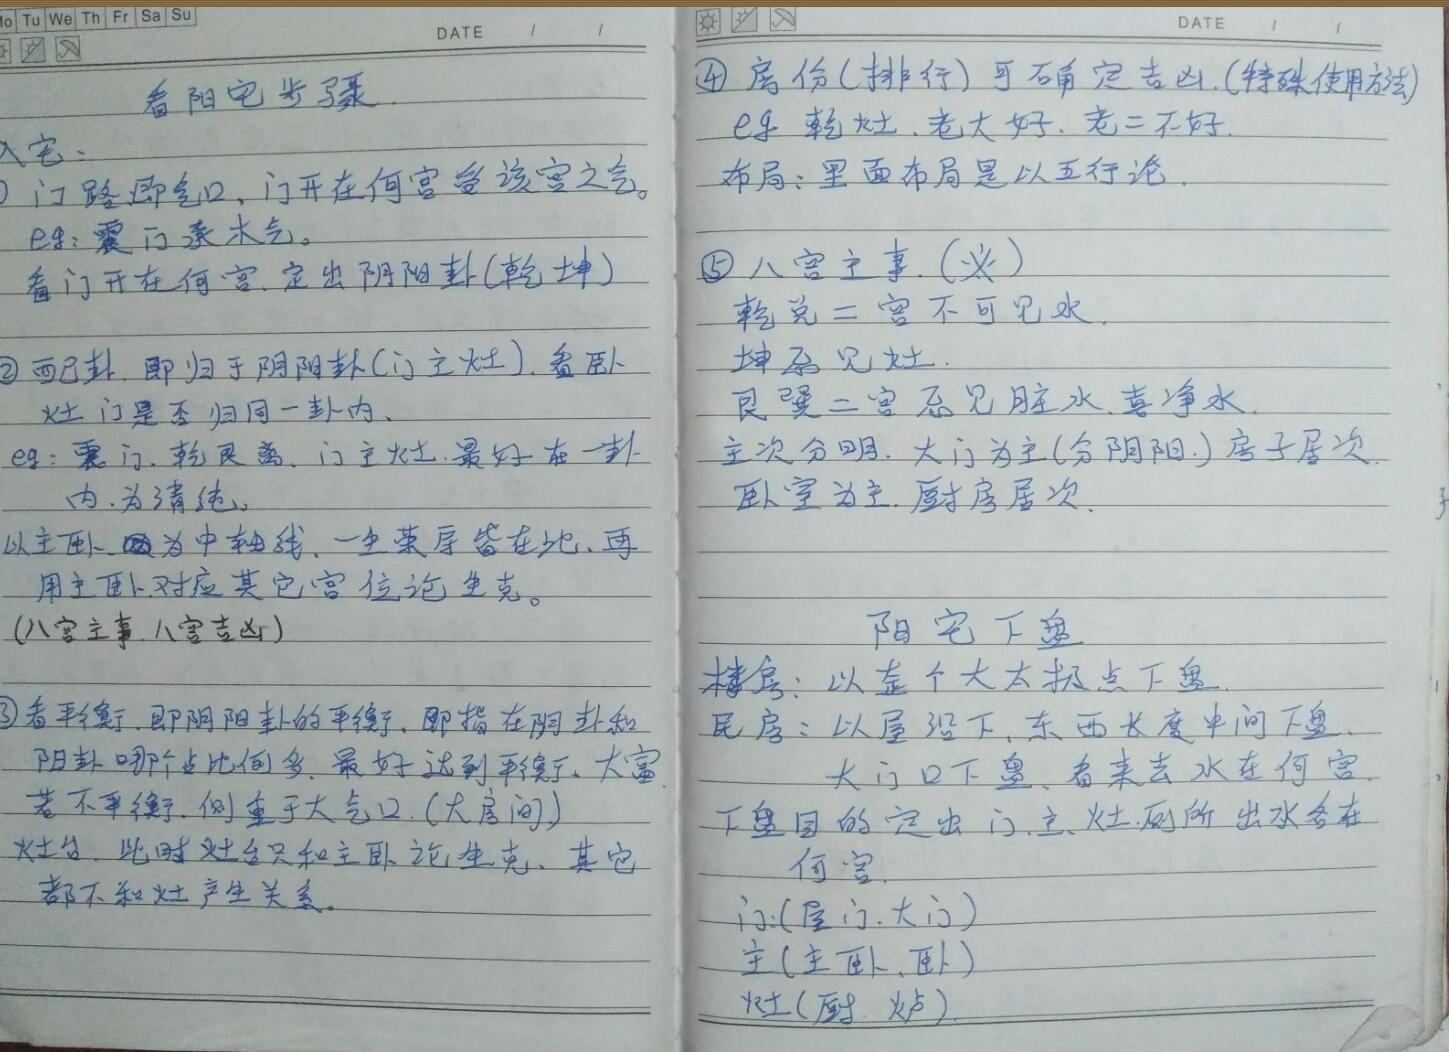 Mo Tu We Th Fr Sa Su
DATE / /
看阳宅步骤
入宅：
门路即气口、门开在何宫受该宫之气。
eg：震门承木气。
看门开在何宫、定出阴阳卦(乾坤)
② 配卦、即归于阴阳卦(门主灶)、看卧
灶门是否归同一卦内、
eg：震门、乾艮离、门主灶、最好在一卦
内、为清纯。
以主卧 为中轴线、一生荣辱皆在此、再
用主卧对应其它宫位论生克。
(八宫主事、八宫吉凶)
③ 看平衡、即阴阳卦的平衡、即指在阴卦和
阳卦哪个占比例多、最好达到平衡、大富
若不平衡、侧重于大气口、(大房间)
灶台、此时灶台只和主卧论生克、其它
都不和灶产生关系。
DATE / /
④ 房份(排行)可确定吉凶.(特殊使用方法)
eg 乾灶、老大好、老二不好.
布局：里面布局是以五行论.
⑤ 八宫主事.(必)
乾兑二宫不可见水.
坤忌见灶.
艮巽二宫忌见脏水、喜净水.
主次分明、大门为主(分阴阳.)房子居次.
卧室为主、厨房居次.
阳宅下盘
楼房：以整个大太极点下盘.
民房：以屋沿下、东西长度中间下盘.
大门口下盘、看来去水在何宫.
下盘目的定出门、主、灶.厕所出水各在
何宫.
门:(屋门、大门)
主(主卧、卧)
灶(厨、炉).